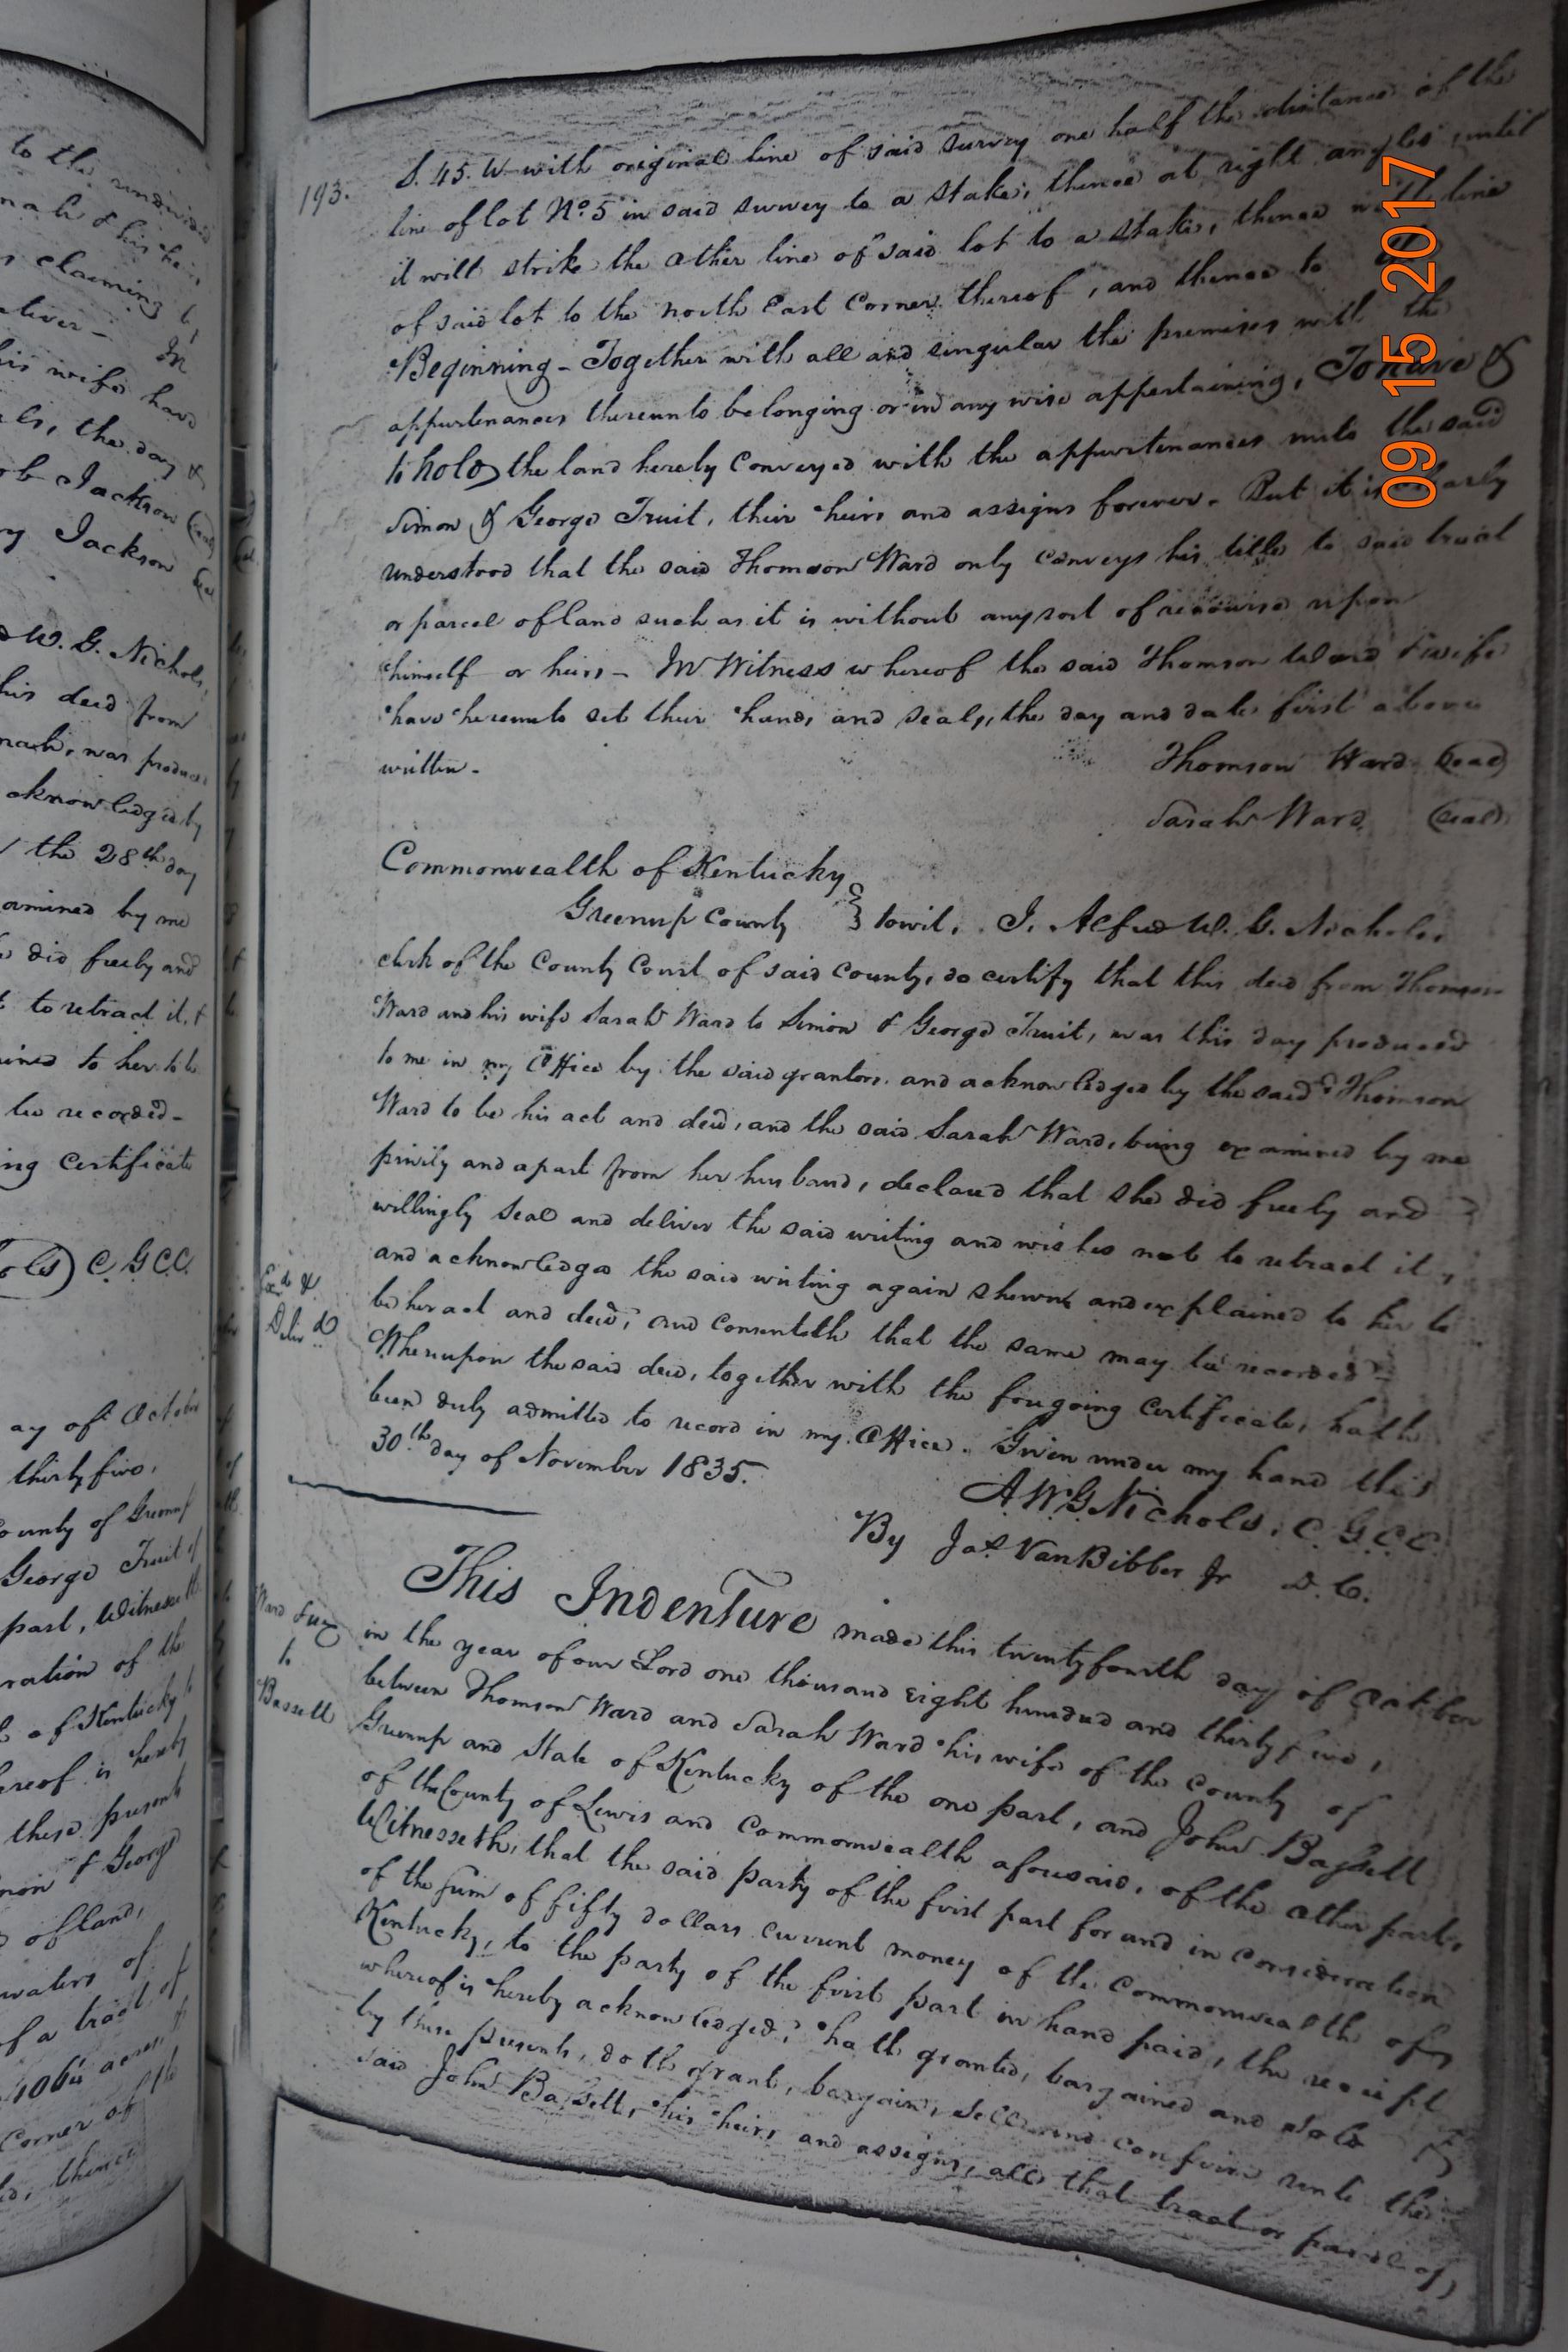 to the undivided
his heirs
claiming
In
his wife have
the day &
Jackson (seal)
Jackson
W. G. Nichols,
his deed from
was produced
acknowledged by
the 28th day
examined by me
did freely and
to retract it, &
explained to her to be
be recorded-
ing certificate
C. G C C.
ay of October
thirty five,
County of Greenup
George Truit of
part, Witnesseth
ration of the
of Kentucky to
hereof is hereby
these presents
Simon & George
of land,
waters of
of a tract of
acres,
Corner of the
thence
193.
S. 45. W with original line of said survey one half the distance of the
line of lot No. 5 in said survey to a stake, thence at right angles until
it will strike the other line of said lot to a stake, thence with line
of said lot to the north East Corner thereof, and thence to
Beginning - Together with all and singular the premises with the
appurtenances thereunto belonging or in any wise appertaining, To have &
to hold the land hereby conveyed with the appurtenances unto the said
Simon & George Truit, their heirs and assigns forever. But it is clearly
understood that the said Thomson Ward only conveys his title to said tract
or parcel of land such as it is without any sort of recourse upon
himself or heirs - In Witness whereof the said Thomson Ward & wife
have hereunto set their hands and seals, the day and date first above
written -
Thomson Ward (seal)
Sarah Ward (seal)
Commonwealth of Kentucky
Greenup County } towit, I, Alfred W. G. Nichols,
clerk of the County Court of said County, do certify that this deed from Thomson
Ward and his wife Sarah Ward to Simon & George Truit, was this day produced
to me in my Office by the said grantors, and acknowledged by the said Thomson
Ward to be his act and deed, and the said Sarah Ward, being examined by me
privily and apart from her husband, declared that she did freely and
willingly seal and deliver the said writing and wishes not to retract it,
and acknowledges the said writing again shewn and explained to her to
be her act and deed, and consenteth that the same may be recorded
Exd. &
Delivd.
Whereupon the said deed, together with the foregoing certificate, hath
been duly admitted to record in my Office. Given under my hand this
30th day of November 1835.
A. W. G. Nichols, C. G. C. C.
By Jas. VanBibber Jr D. C.
This Indenture made this twenty fourth day of October
Ward &ux
to
Bassett
in the year of our Lord one thousand Eight hundred and thirty five,
between Thomson Ward and Sarah Ward his wife of the County of
Greenup and State of Kentucky of the one part, and John Bassett
of the County of Lewis and Commonwealth aforesaid, of the other part,
Witnesseth, that the said party of the first part for and in consideration
of the sum of fifty dollars current money of the Commonwealth of
Kentucky, to the party of the first part in hand paid, the receipt
whereof is hereby acknowledged, hath granted, bargained and sold &
by these presents, doth grant, bargain, sell and confirm unto the
said John Bassett, his heirs and assigns, all that tract or parcel of
09 15 2017